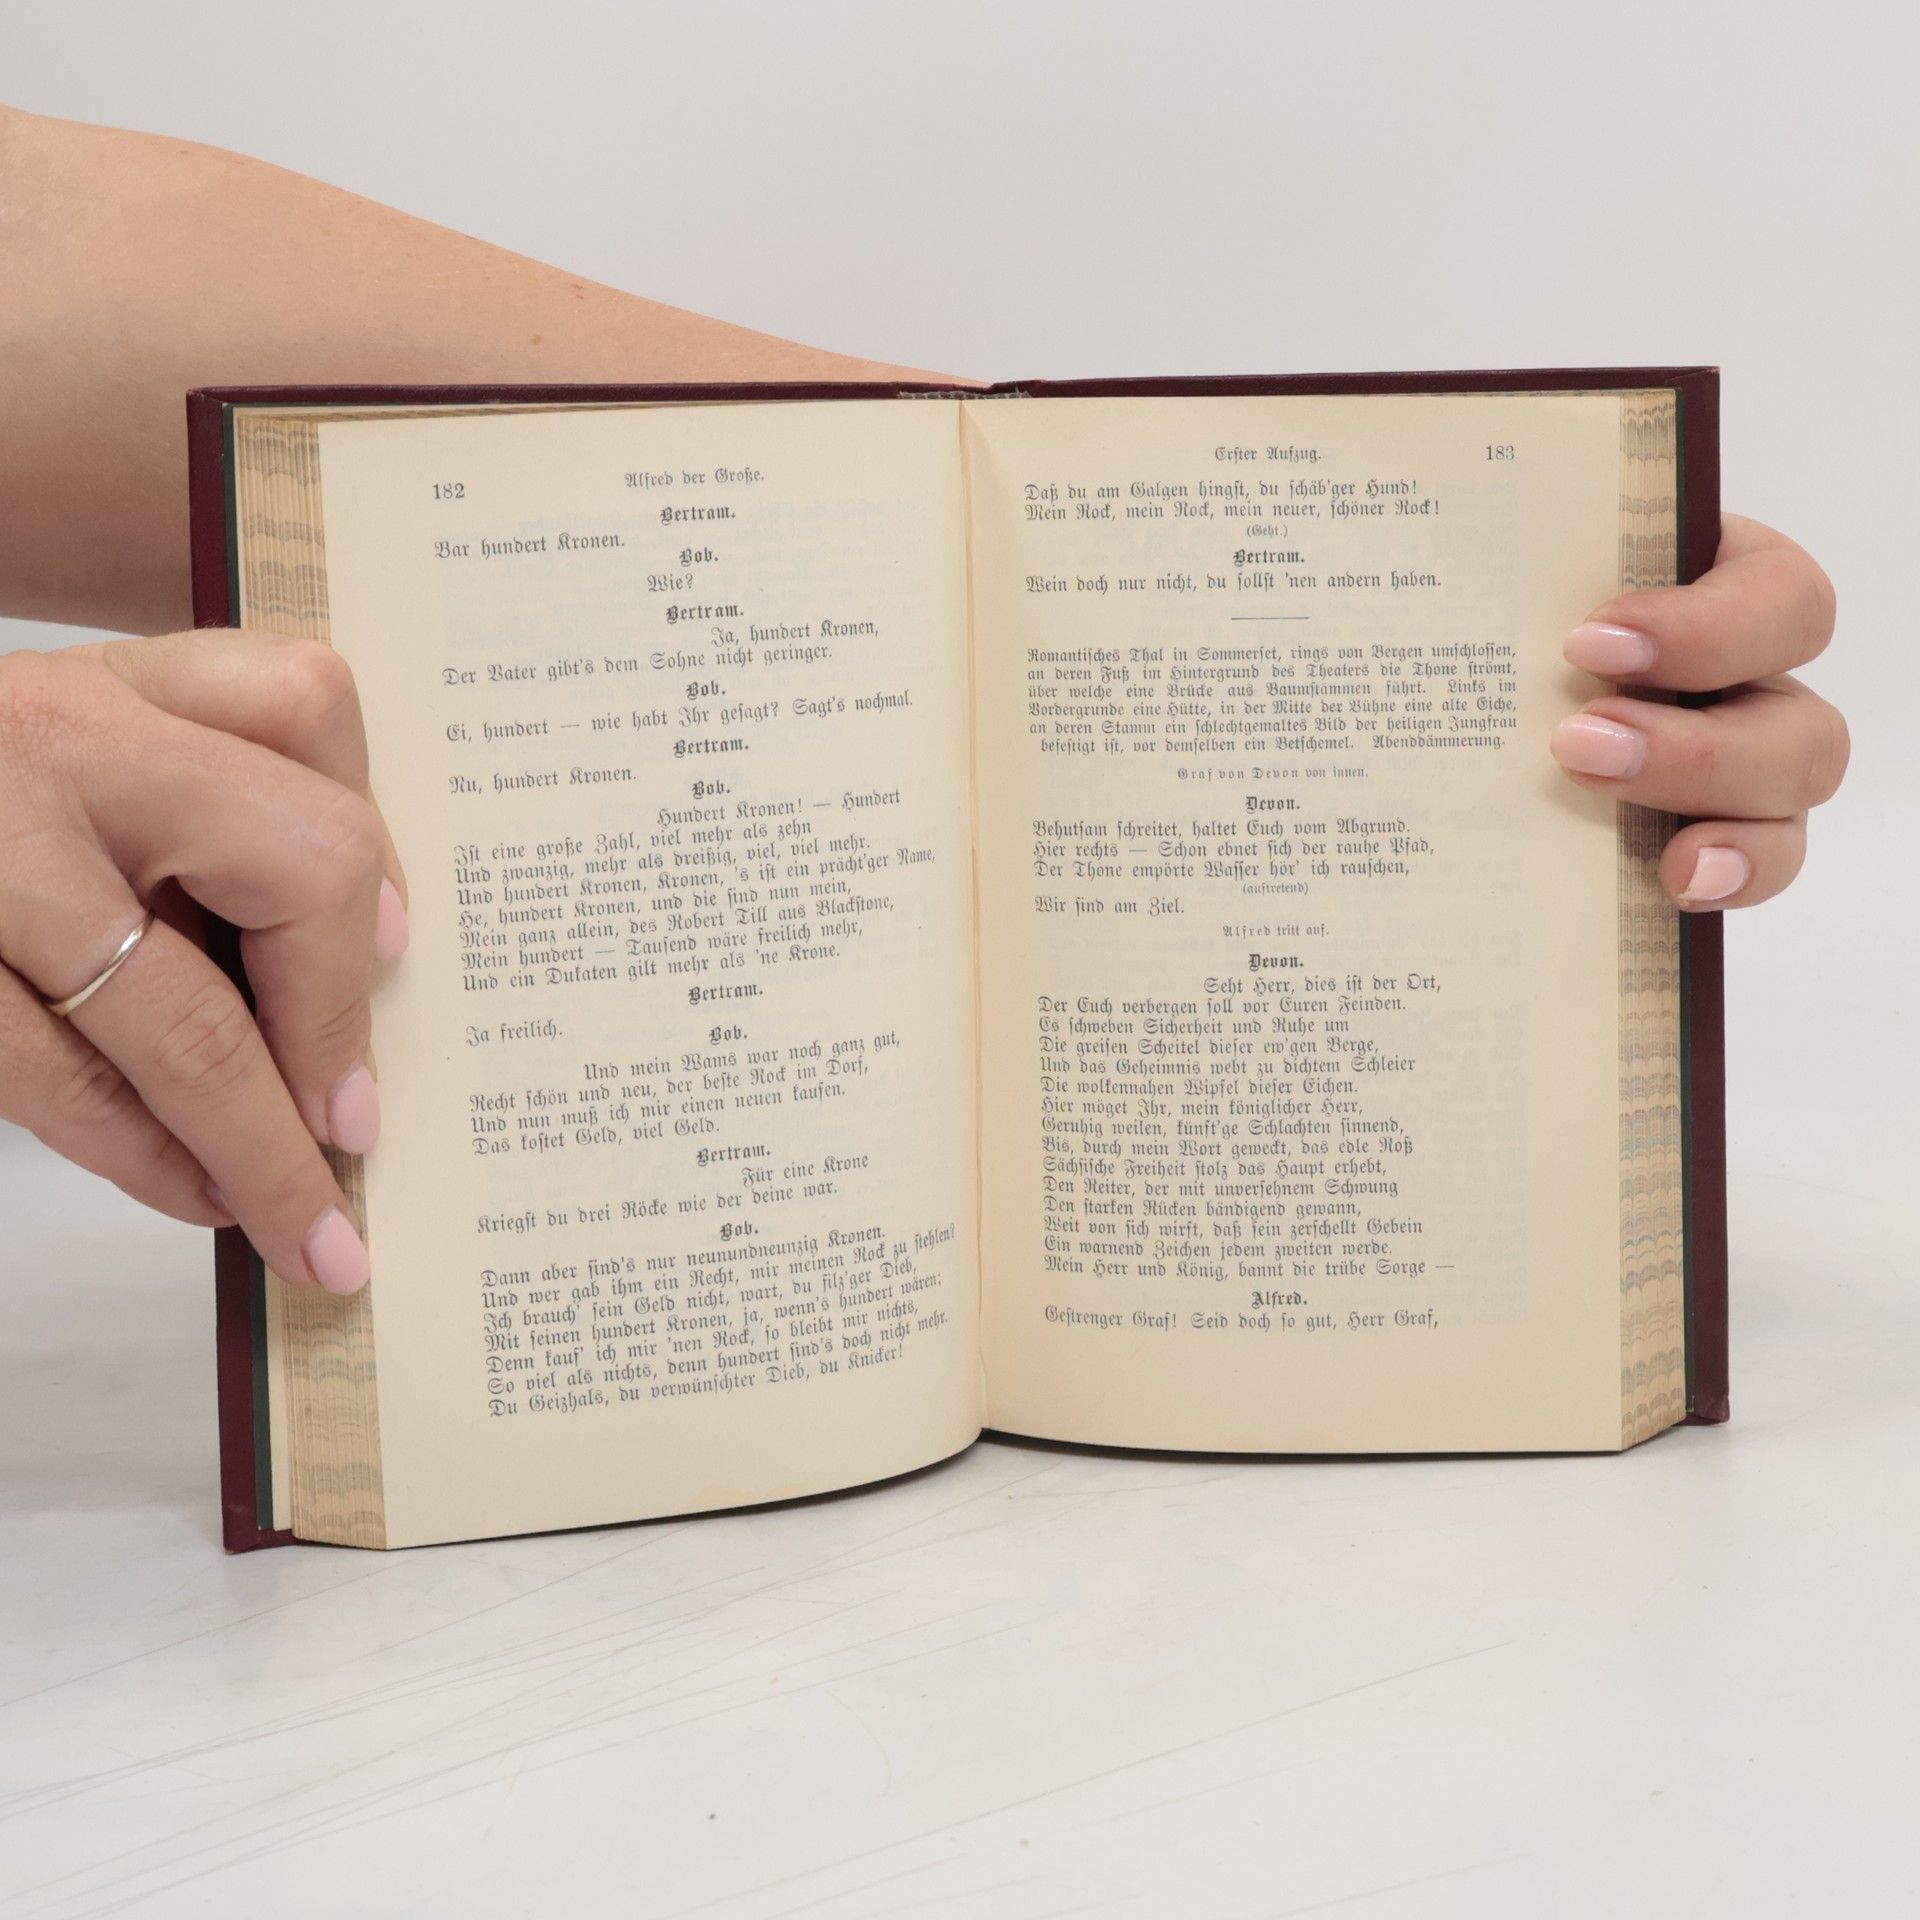 182
Alfred der Große.
Bertram.
Bar hundert Kronen.
Bob.
Wie?
Bertram.
Ja, hundert Kronen,
Der Vater gibt's dem Sohne nicht geringer.
Bob.
Ei, hundert — wie habt Ihr gesagt? Sagt's nochmal.
Bertram.
Nu, hundert Kronen.
Bob.
Hundert Kronen! — Hundert
Ist eine große Zahl, viel mehr als zehn
Und zwanzig, mehr als dreißig, viel, viel mehr.
Und hundert Kronen, Kronen, 's ist ein prächt'ger Name,
He, hundert Kronen, und die sind nun mein,
Mein ganz allein, des Robert Till aus Blackstone,
Mein hundert — Tausend wäre freilich mehr,
Und ein Dukaten gilt mehr als 'ne Krone.
Bertram.
Ja freilich.
Bob.
Und mein Wams war noch ganz gut,
Recht schön und neu, der beste Rock im Dorf,
Und nun muß ich mir einen neuen kaufen.
Das kostet Geld, viel Geld.
Bertram.
Für eine Krone
Kriegst du drei Röcke wie der deine war.
Bob.
Dann aber sind's nur neunundneunzig Kronen.
Und wer gab ihm ein Recht, mir meinen Rock zu stehlen?
Ich brauch' sein Geld nicht, wart, du filz'ger Dieb,
Mit seinen hundert Kronen, ja, wenn's hundert wären;
Denn kauf' ich mir 'nen Rock, so bleibt mir nichts,
So viel als nichts, denn hundert sind's doch nicht mehr.
Du Geizhals, du verwünschter Dieb, du Knicker!
Erster Aufzug.
183
Daß du am Galgen hingst, du schäb'ger Hund!
Mein Rock, mein Rock, mein neuer, schöner Rock!
(Geht.)
Bertram.
Wein doch nur nicht, du sollst 'nen andern haben.
Romantisches Thal in Sommerset, rings von Bergen umschlossen,
an deren Fuß im Hintergrund des Theaters die Thone strömt,
über welche eine Brücke aus Baumstämmen führt. Links im
Vordergrunde eine Hütte, in der Mitte der Bühne eine alte Eiche,
an deren Stamm ein schlechtgemaltes Bild der heiligen Jungfrau
befestigt ist, vor demselben ein Betschemel. Abenddämmerung.
Graf von Devon von innen.
Devon.
Behutsam schreitet, haltet Euch vom Abgrund.
Hier rechts — Schon ebnet sich der rauhe Pfad,
Der Thone empörte Wasser hör' ich rauschen,
(auftretend)
Wir sind am Ziel.
Alfred tritt auf.
Devon.
Seht Herr, dies ist der Ort,
Der Euch verbergen soll vor Euren Feinden.
Es schweben Sicherheit und Ruhe um
Die greisen Scheitel dieser ew'gen Berge,
Und das Geheimnis webt zu dichtem Schleier
Die wolkennahen Wipfel dieser Eichen.
Hier möget Ihr, mein königlicher Herr,
Geruhig weilen, künft'ge Schlachten sinnend,
Bis, durch mein Wort geweckt, das edle Roß
Sächsische Freiheit stolz das Haupt erhebt,
Den Reiter, der mit unversehnem Schwung
Den starken Rücken bändigend gewann,
Weit von sich wirft, daß sein zerschellt Gebein
Ein warnend Zeichen jedem zweiten werde.
Mein Herr und König, bannt die trübe Sorge —
Alfred.
Gestrenger Graf! Seid doch so gut, Herr Graf,